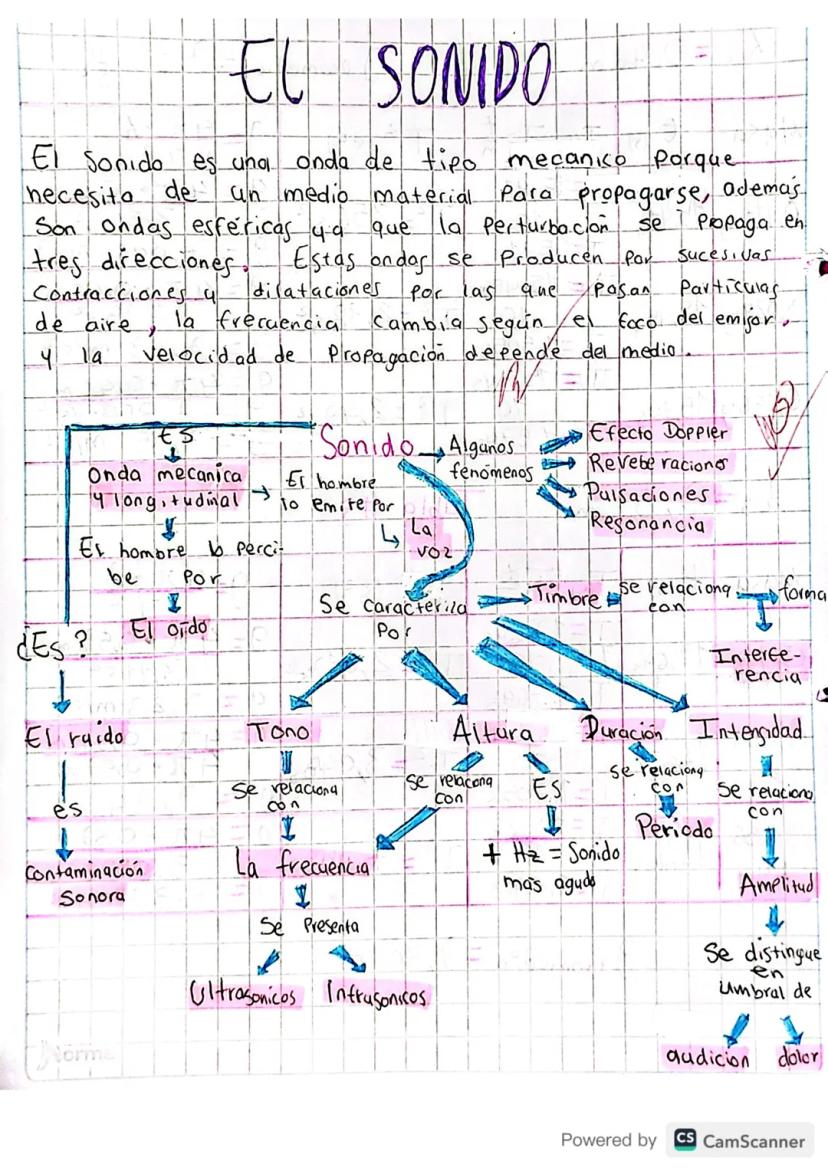 EL SONIDO
El sonido es una onda de tipo mecanico porque
necesita de un medio material para propagarse, además
son ondas esféricas ya que la perturbación se propaga en
tres direcciones. Estas ondas se producen por sucesivas
contracciones y dilataciones por las que pasan partículas
de aire, la frecuencia cambia según el foco del emisor.
y la velocidad de propagación depende del medio.
Sonido
Algunos
fenómenos
Efecto Doppler
Reveberaciones
Pulsaciones
Resonancia
ES
Onda mecanica
y longitudinal
El hombre
lo emite por
La
voz
El hombre lo perci-
be por
El oido
Se caracteriza
Por
Timbre
se relaciona
con
forma
Interfe-
rencia
¿Es?
El ruido
es
contaminación
sonora
Tono
Se relaciona
con
La frecuencia
Se presenta
Ultrasonicos
Infrasonicos
Altura
se relaciona
con
ES
+ Hz = Sonido
más agudo
Duración
se relaciona
con
Período
Intensidad
Se relaciona
con
Amplitud
Se distingue
en
umbral de
audicion
dolor
Norma
Powered by CS CamScanner